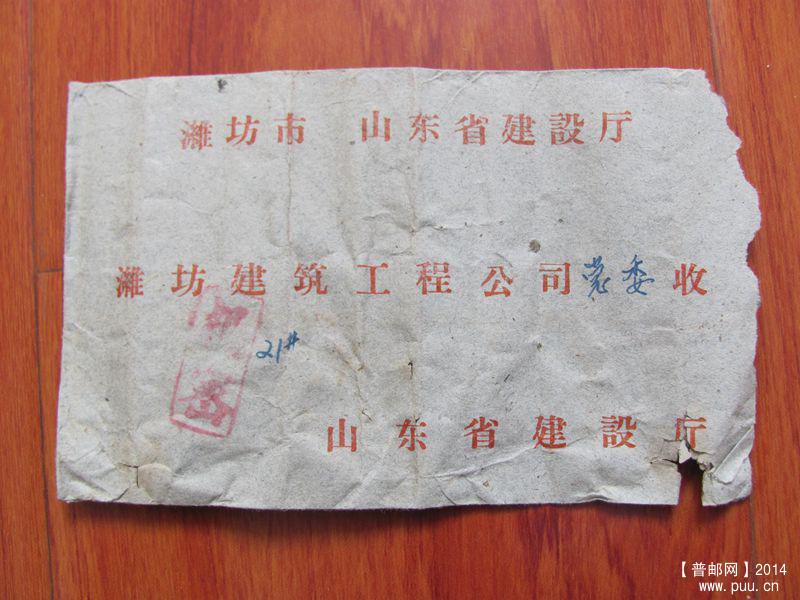 潍坊市 山东省建設厅
潍坊建筑工程公司党委收
21#
山东省建設厅
【普邮网】2014
www.puu.cn